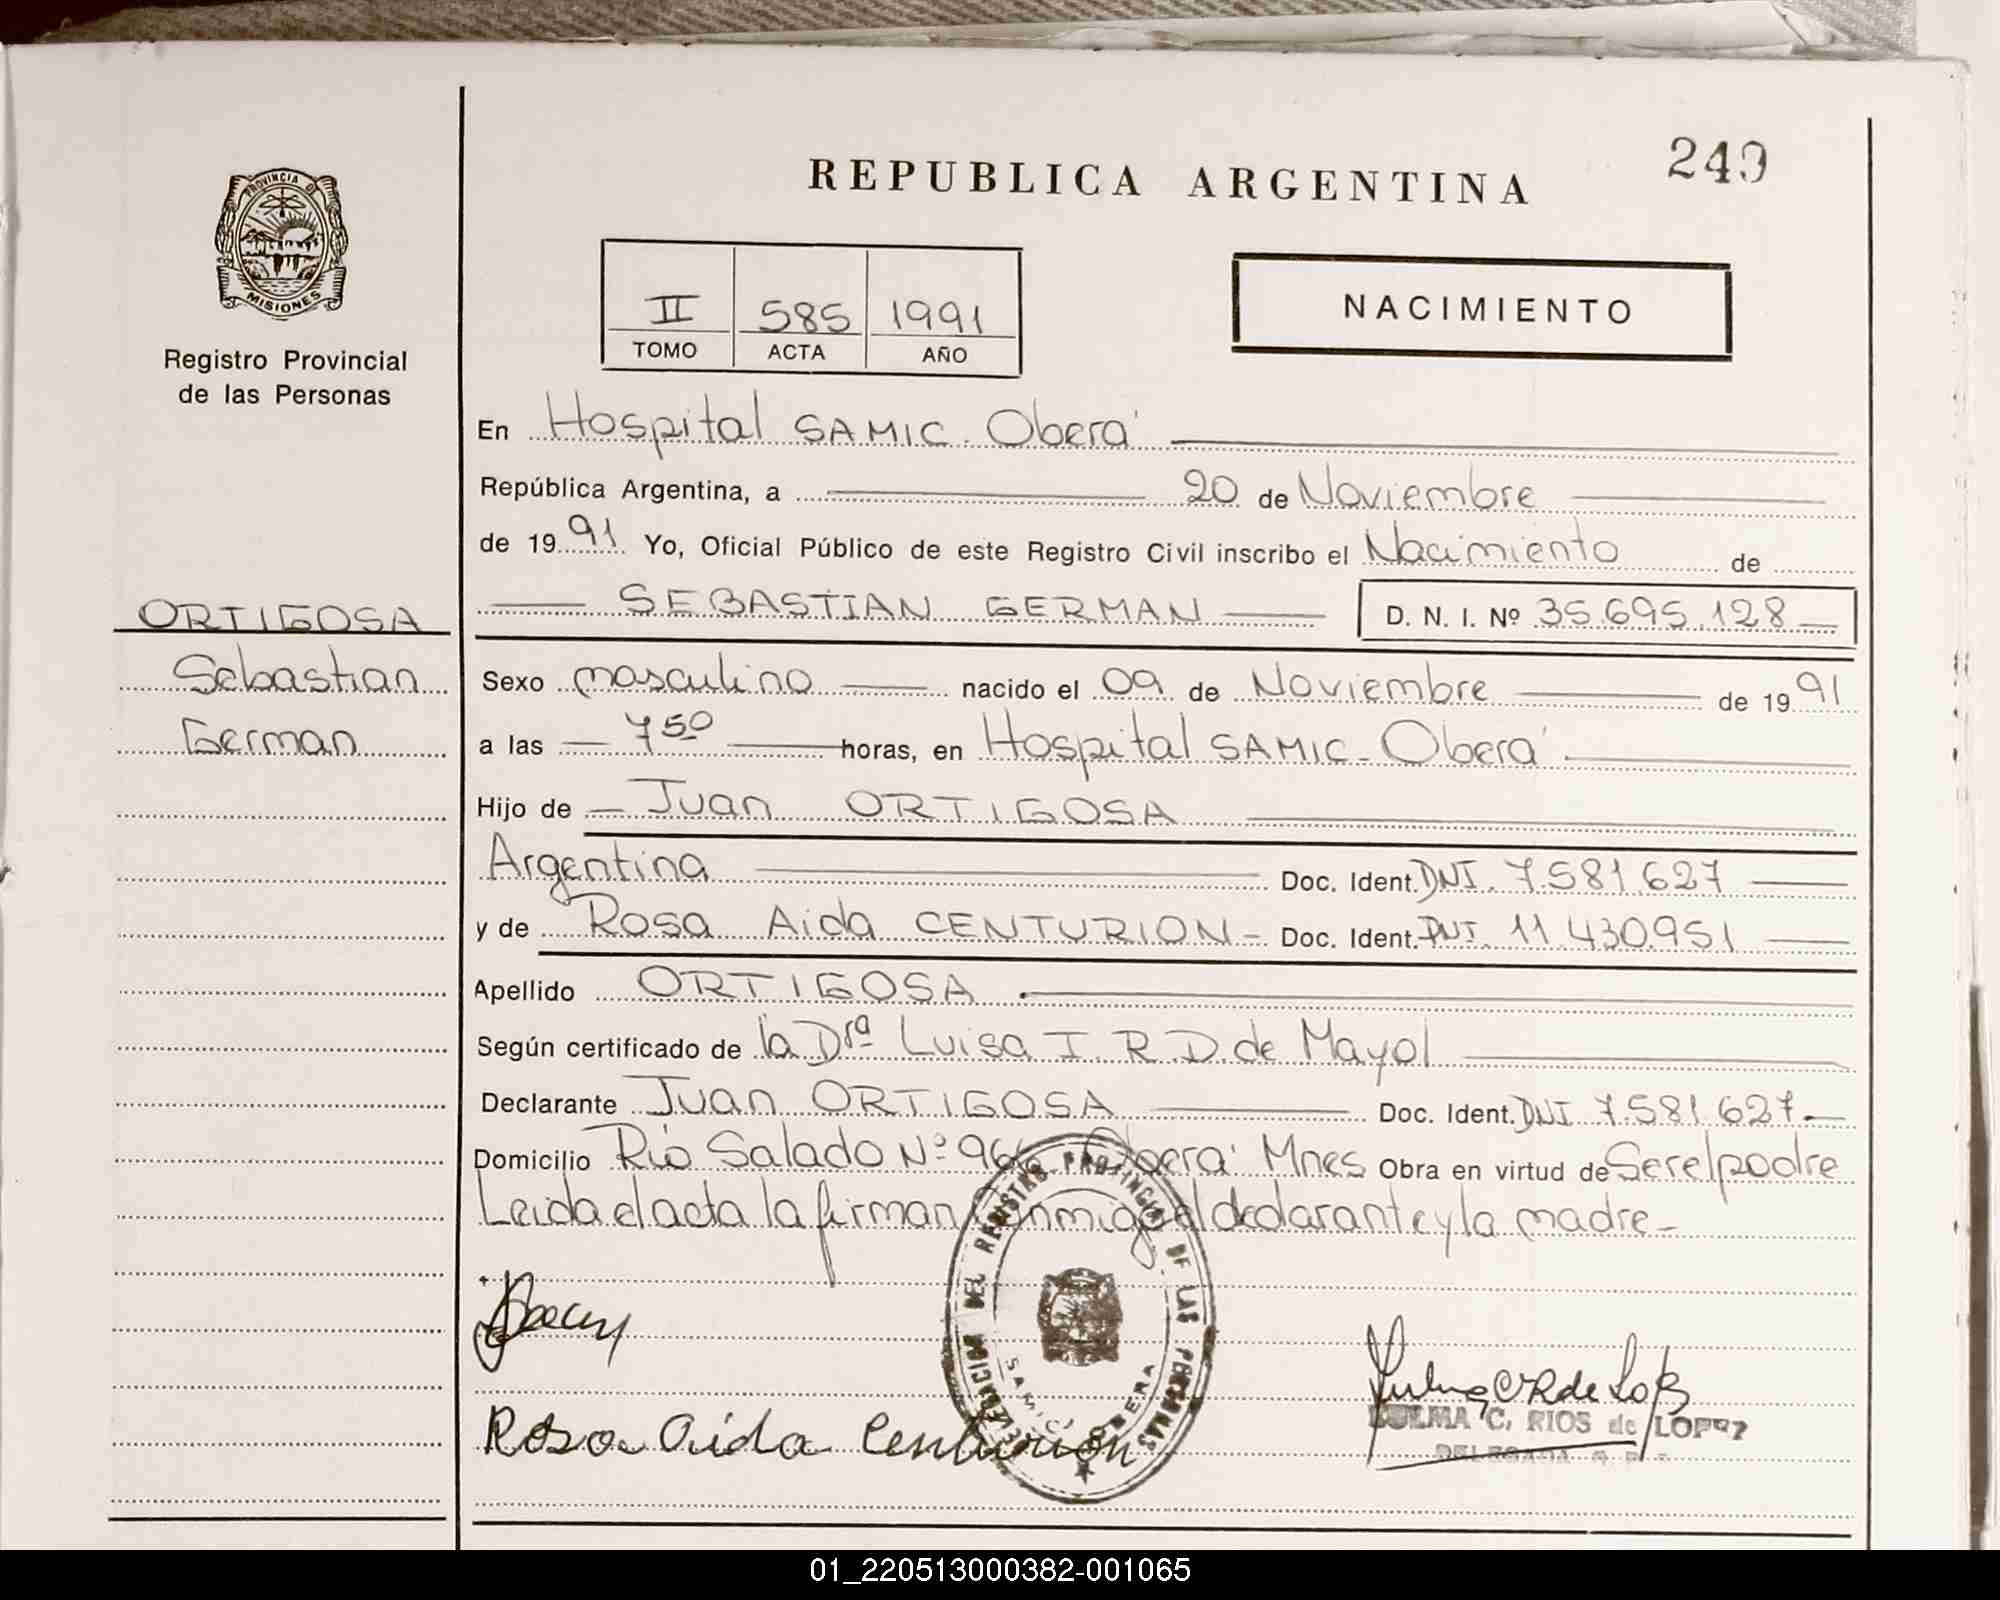 REPUBLICA ARGENTINA
249
PROVINCIA DE
MISIONES
Registro Provincial
de las Personas
II 585 1991
TOMO ACTA AÑO
NACIMIENTO
En Hospital SAMIC. Oberá
República Argentina, a 20 de Noviembre
de 1991 Yo, Oficial Público de este Registro Civil inscribo el Nacimiento de
SEBASTIAN GERMAN D. N. I. Nº 35.695.128
ORTIGOSA
Sebastian
German
Sexo masculino nacido el 09 de Noviembre de 1991
a las 7 50 horas, en Hospital SAMIC - Oberá
Hijo de Juan ORTIGOSA
Argentina Doc. Ident. DNI. 7.581.627
y de Rosa Aida CENTURION - Doc. Ident. DNI. 11.430.951
Apellido ORTIGOSA
Según certificado de la Drª Luisa I. R. D. de Mayol
Declarante Juan ORTIGOSA Doc. Ident. DNI 7.581.627
Domicilio Rio Salado Nº Oberá Mnes Obra en virtud de Ser el padre
Leida el acta la firman Conmigo el declarante y la madre -
DELEGACION DEL REGISTRO PROVINCIAL DE LAS PERSONAS
SAMIC OBERA
Rosa Aida Centurion
ZULMA C. RIOS de LOPEZ
01_220513000382-001065